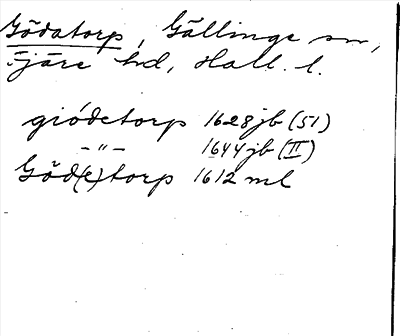 Gödatorp, Gällinge sn,
Fjäre hd, Hall. l.
giödetorp 1628 jb (51)
-"- 1644 jb (II)
Göd(e)torp 1612 ml